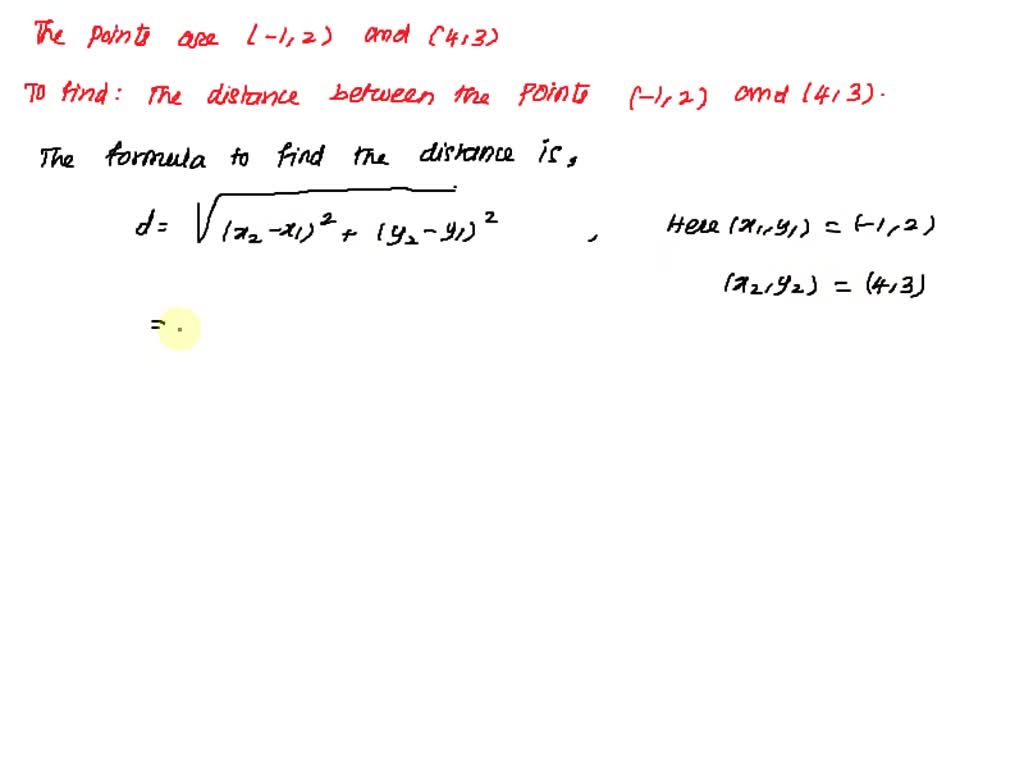 The points are (-1,2) and (4,3)
To find: The distance between the points (-1,2) and (4,3).
The formula to find the distance is,
d= √(x₂-x₁)² + (y₂-y₁)² , Here (x₁,y₁) = (-1,2)
(x₂,y₂) = (4,3)
=